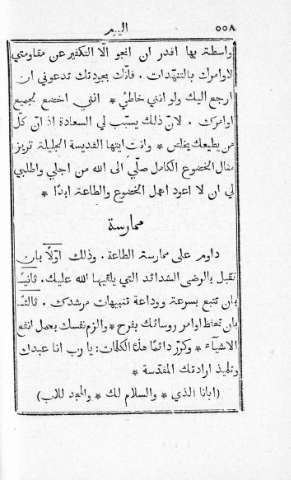 ٥٥٨ اليوم
واسطة بها اقدر ان انجو الّا التكفير عن مقاومتي
لاوامرك بالتنهدات. فانك بجودتك تدعوني ان
ارجع اليك ولو انني خاطئ * انني اخضع لجميع
اوامرك. لان ذلك يسبب لي السعادة اذ ان كل
من يطيعك يخلص * وانت ايتها القديسة الجليلة تريز
مثال الخضوع الكامل صلّي الى الله من اجلي واطلبي
لي ان لا اعود اهمل الخضوع والطاعة ابدًا *
ممارسة
داوم على ممارسة الطاعة. وذلك اولًا بان
تقبل بالرضى الشدائد التي يلقيها الله عليك. ثانيًا
بان تتبع بسرعة ووداعة تنبيهات مرشدك. ثالثًا
بان تحفظ اوامر روسائك بفرح * والزم نفسك بعمل انفع
الاشياء * وكرّر دائمًا هذه الكلمات: يا رب انا عبدك
وتلميذ ارادتك المقدسة *
(ابانا الذي * والسلام لك * والمجد للاب)